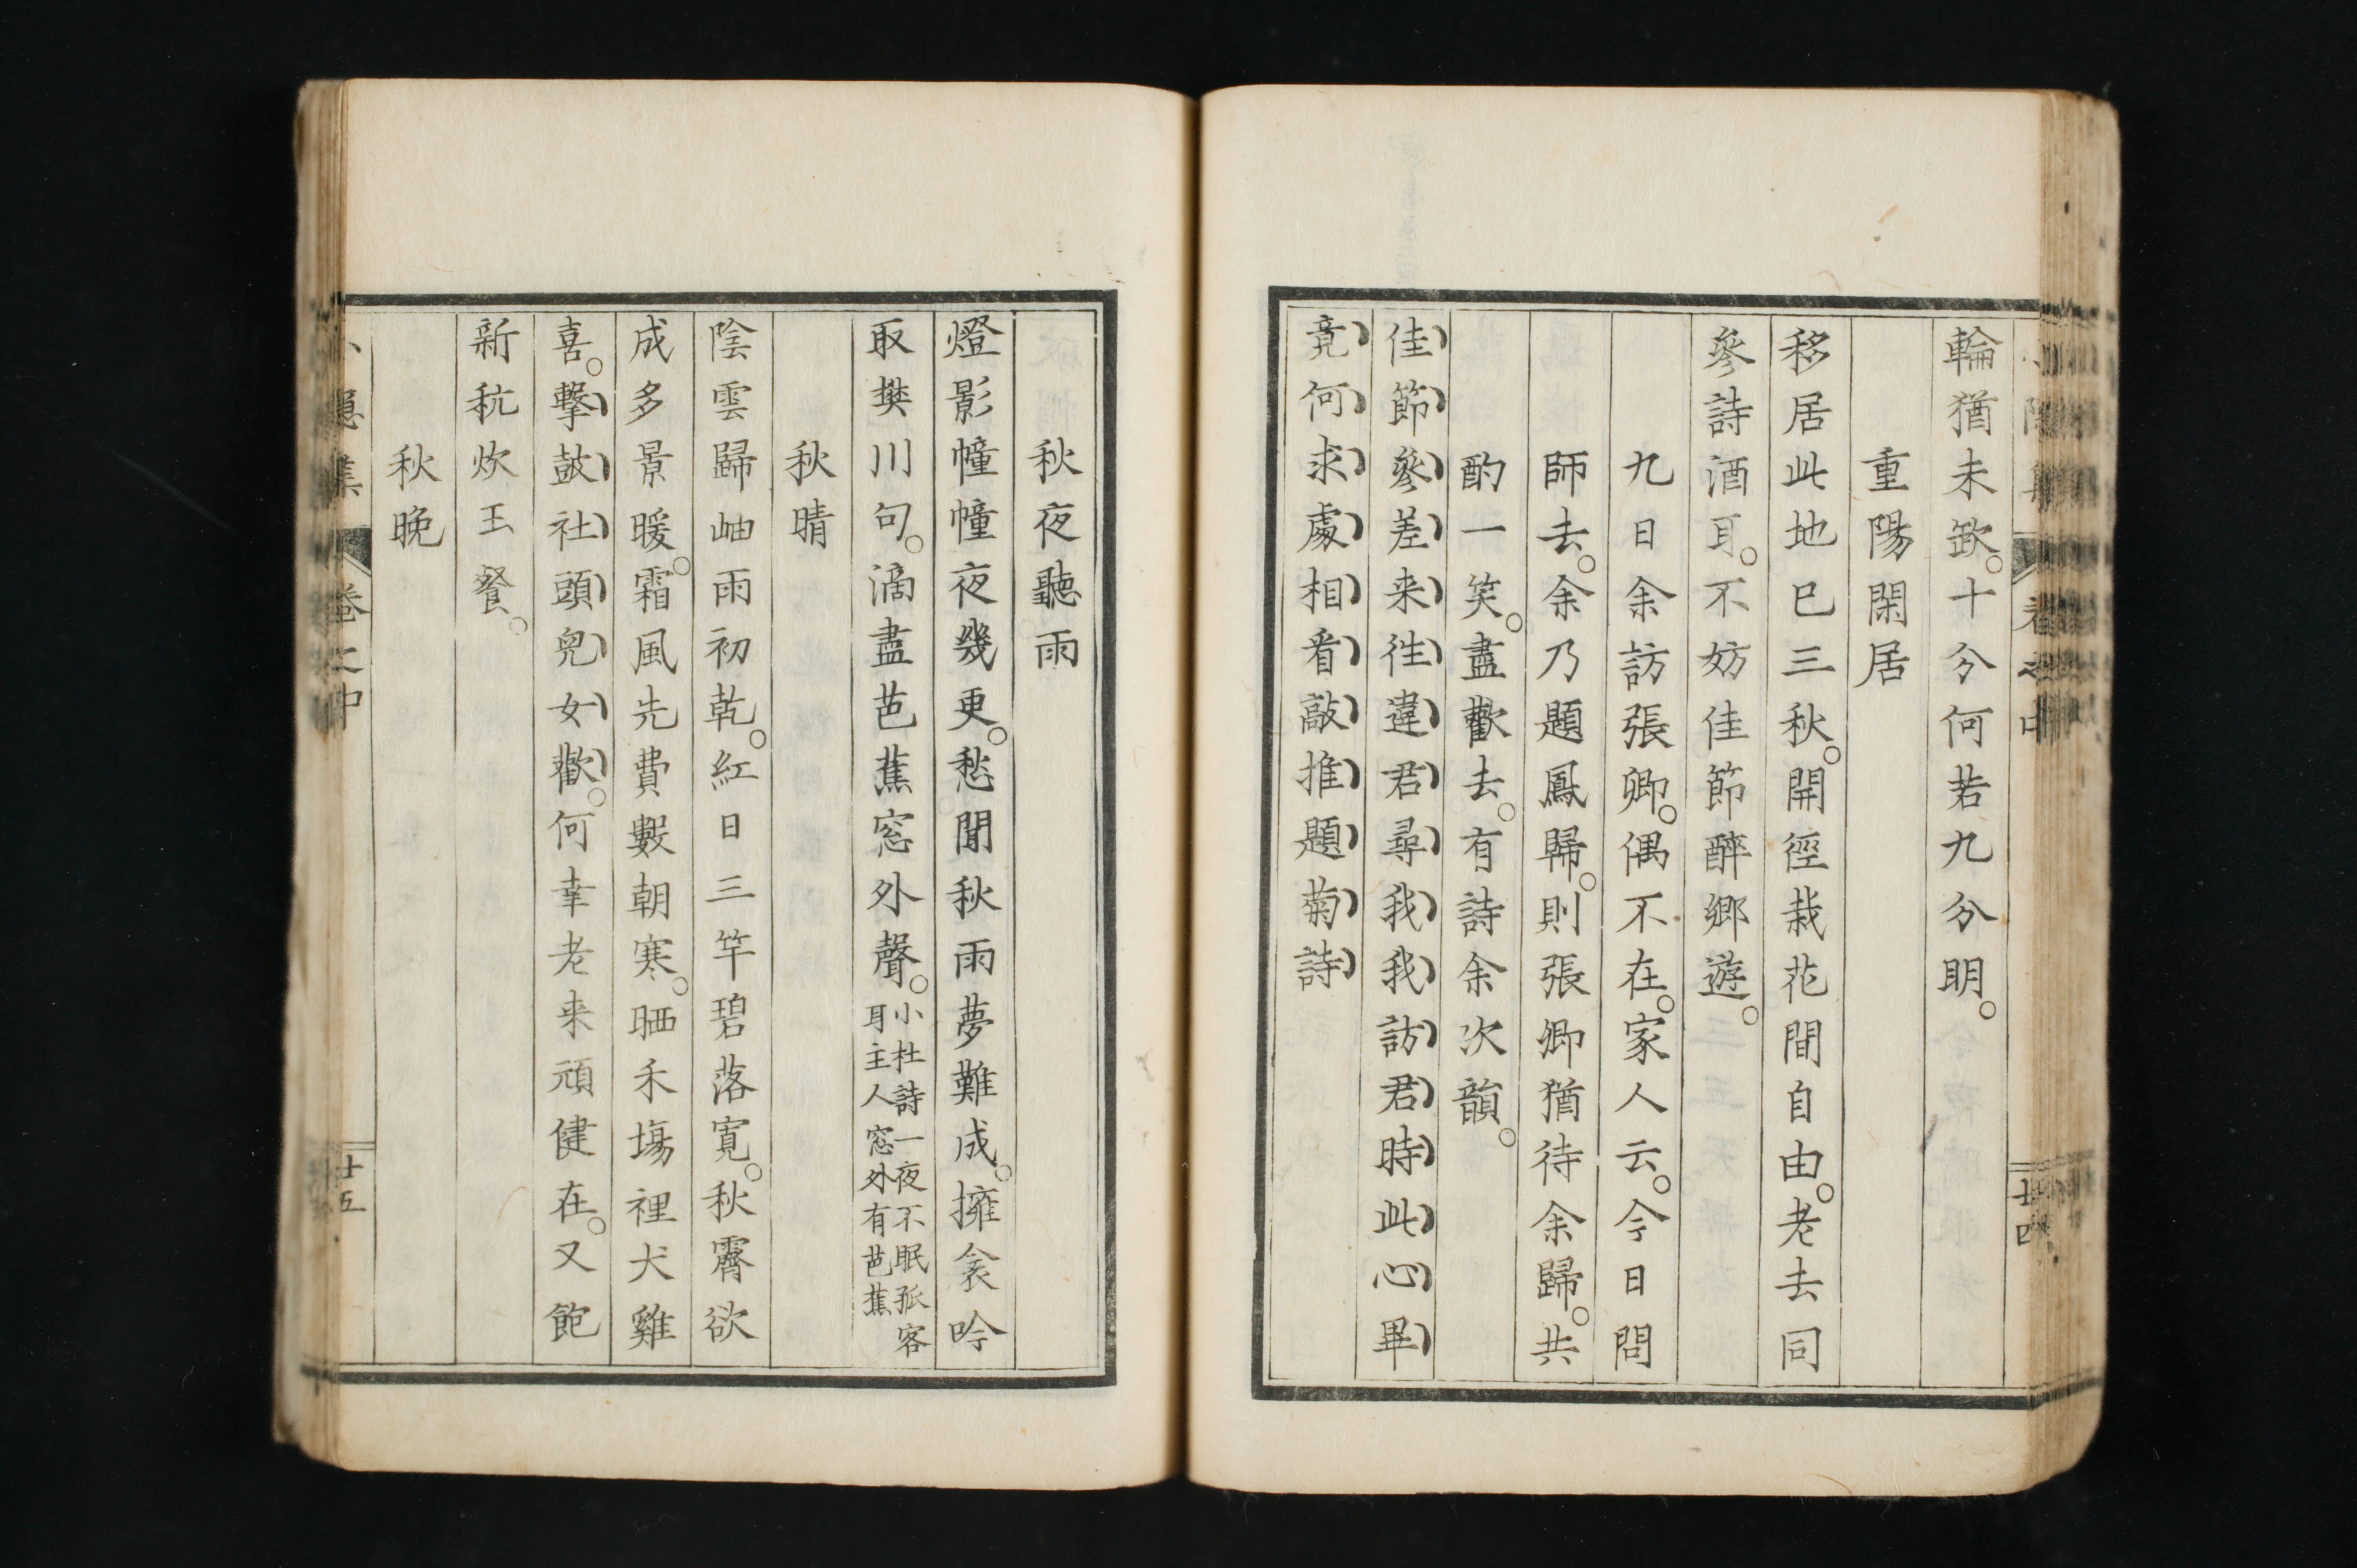 輪猶未缺。十分何若九分明。
重陽閑居
移居此地已三秋。開徑栽花間自由。老去同
參詩酒耳。不妨佳節醉鄉遊。
九日余訪張卿。偶不在。家人云。今日問
師去。余乃題鳳歸。則張卿猶待余歸。共
酌一笑。盡歡去。有詩余次韻。
佳節參差来往違君尋我我訪君時此心畢
竟何求處相看敲推題菊詩
秋夜聽雨
燈影幢幢夜幾更。愁聞秋雨夢難成。擁衾吟
取樊川句。滴盡芭蕉窓外聲。小杜詩一夜不眠孤客
耳主人窓外有芭蕉
秋晴
陰雲歸岫雨初乾。紅日三竿碧落寬。秋霽欲
成多景暖。霜風先費數朝寒。晒禾塲裡犬雞
喜。擊鼓社頭兒女歡。何幸老来頑健在。又飽
新秔炊玉餐。
秋晚
卷之中
十五